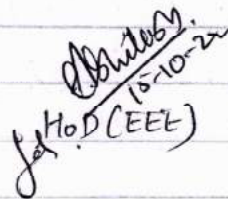 15-10-22
for HOD (EEE)